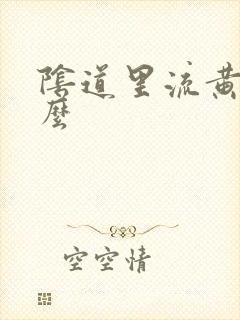 陰道里流黃
麼
空空情